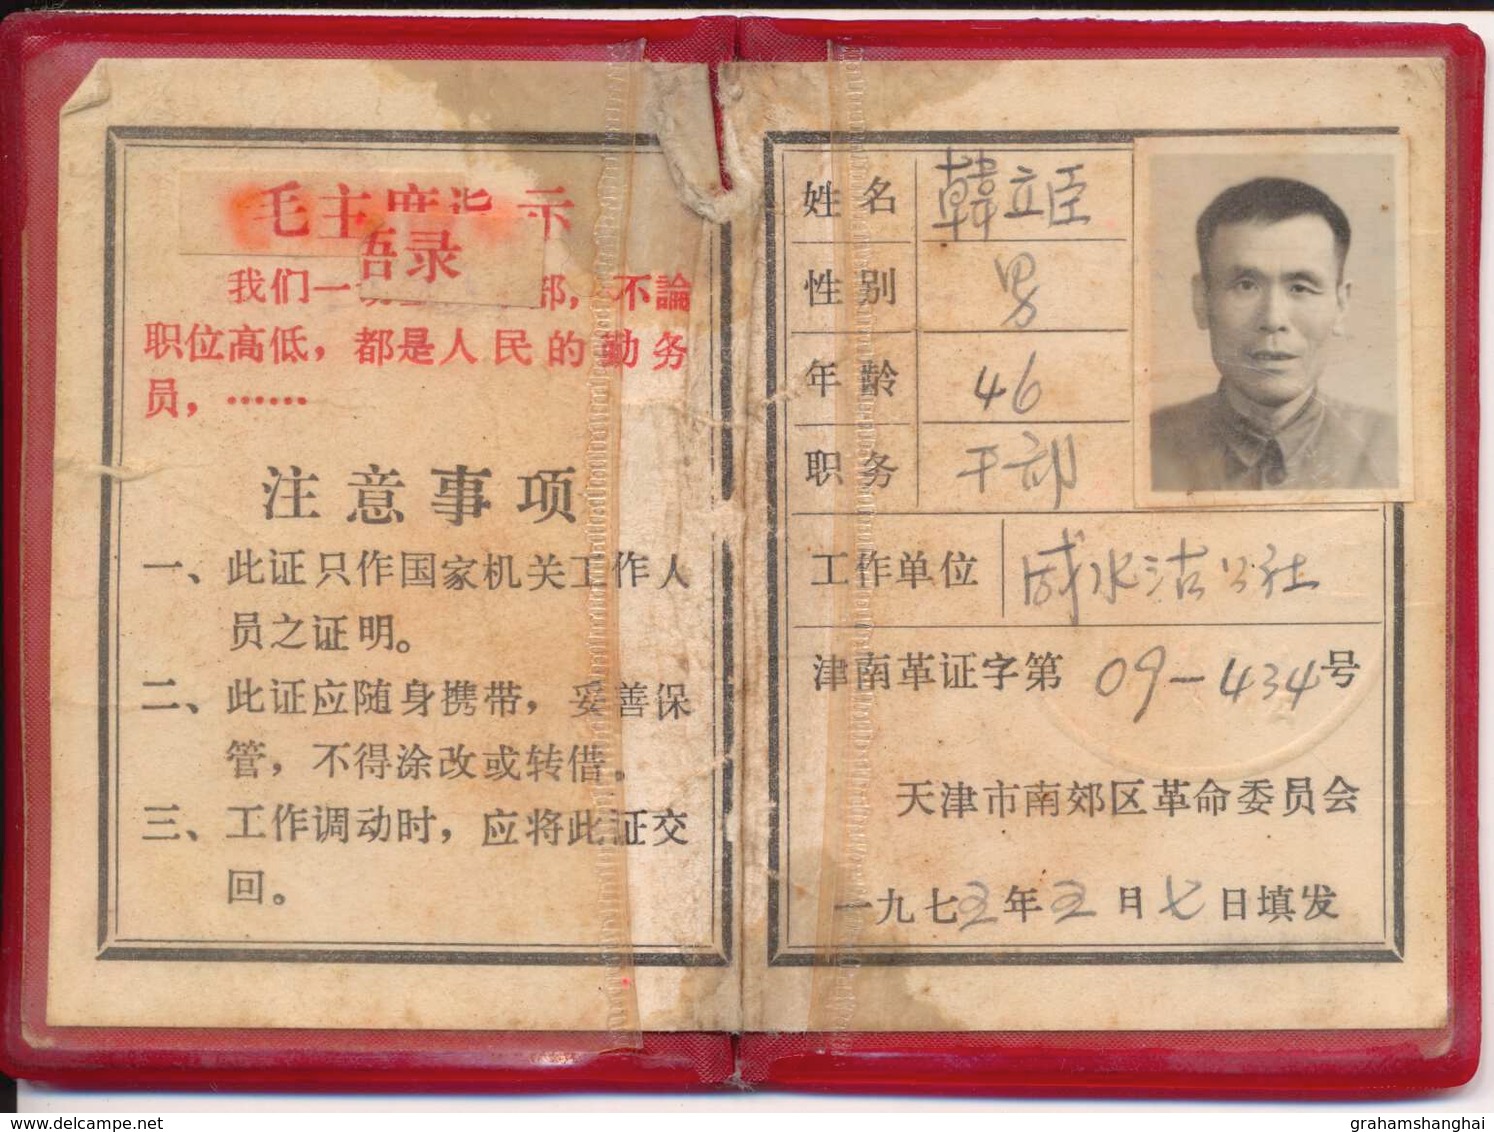 毛主席指示
语录
我们一切 部，不論
职位高低，都是人民的勤务
员，……
注意事项
一、此证只作国家机关工作人
员之证明。
二、此证应随身携带，妥善保
管，不得涂改或转借。
三、工作调动时，应将此证交
回。
姓名 韓立臣
性别 男
年龄 46
职务 干部
工作单位 咸水沽公社
津南革证字第 09-434号
天津市南郊区革命委员会
一九七五年五月七日填发
delcampe.net
grahamshanghai